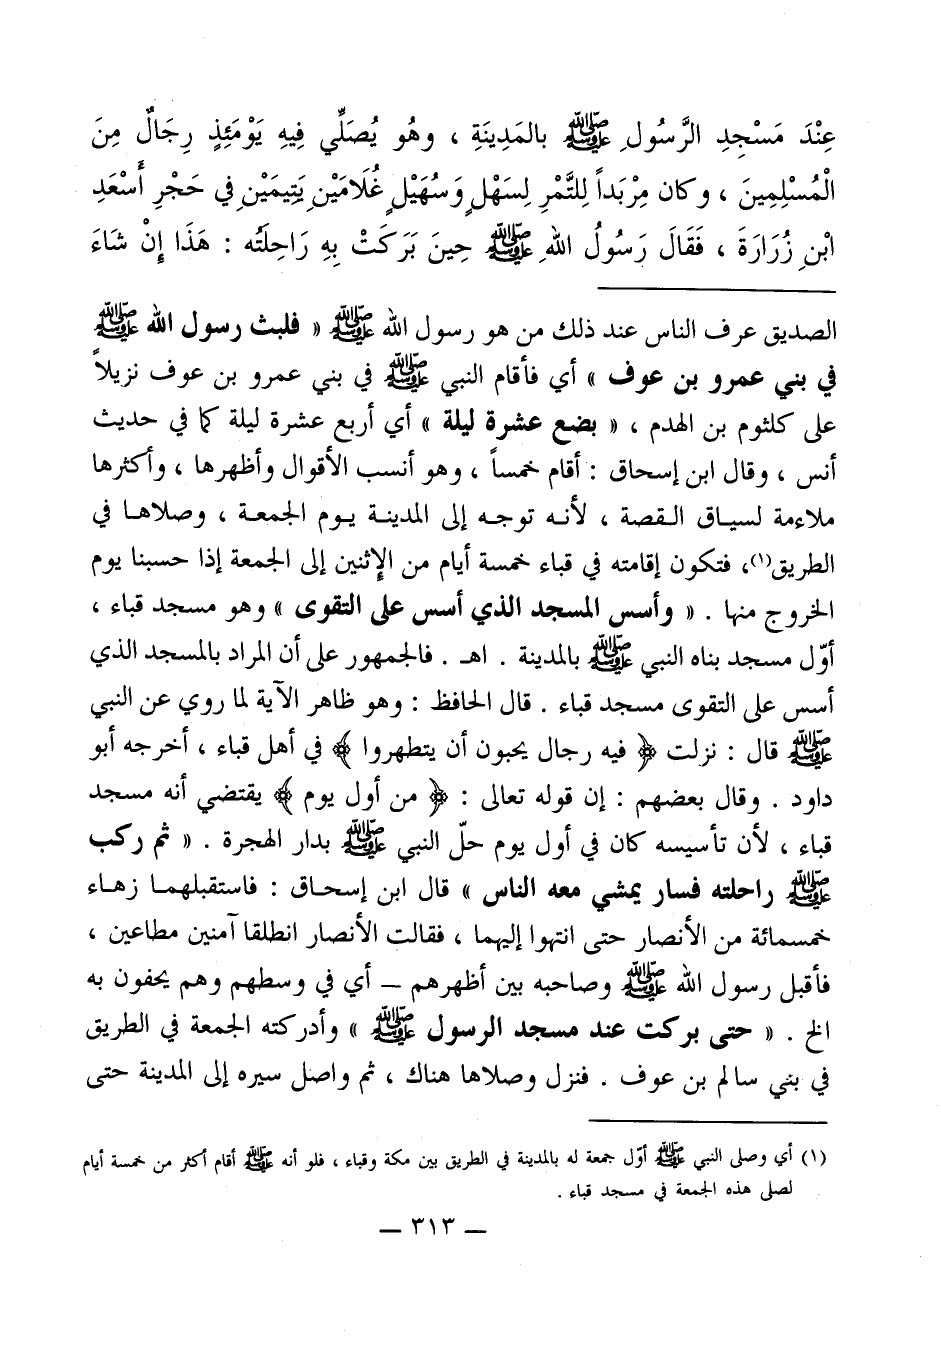 عِنْدَ مَسْجِدِ الرَّسُولِ ﷺ بالمَدِينَةِ ، وهُو يُصَلِّي فِيهِ يَوْمَئِذٍ رِجَالٌ مِنَ
الْمُسْلِمِينَ ، وكان مِرْبَداً لِلتَّمْرِ لِسَهْلٍ وَسُهَيْلٍ غُلَامَيْنِ يَتِيمَيْنِ في حَجْرِ أَسْعَدِ
ابْنِ زُرَارَةَ ، فَقَالَ رَسُولُ اللهِ ﷺ حِينَ بَرَكَتْ بِهِ رَاحِلَتُه : هَذَا إنْ شَاءَ
الصديق عرف الناس عند ذلك من هو رسول الله ﷺ « فلبث رسول الله ﷺ
في بني عمرو بن عوف » أي فأقام النبي ﷺ في بني عمرو بن عوف نزيلاً
على كلثوم بن الهدم ، « بضع عشرة ليلة » أي أربع عشرة ليلة كما في حديث
أنس ، وقال ابن إسحاق : أقام خمساً ، وهو أنسب الأقوال وأظهرها ، وأكثرها
ملاءمة لسياق القصة ، لأنه توجه إلى المدينة يوم الجمعة ، وصلاها في
الطريق(١)، فتكون إقامته في قباء خمسة أيام من الإثنين إلى الجمعة إذا حسبنا يوم
الخروج منها . « وأسس المسجد الذي أسس على التقوى » وهو مسجد قباء ،
أوّل مسجد بناه النبي ﷺ بالمدينة . اهـ . فالجمهور على أن المراد بالمسجد الذي
أسس على التقوى مسجد قباء . قال الحافظ : وهو ظاهر الآية لما روي عن النبي
ﷺ قال : نزلت ﴿ فيه رجال يحبون أن يتطهروا ﴾ في أهل قباء ، أخرجه أبو
داود . وقال بعضهم : إن قوله تعالى : ﴿ من أول يوم ﴾ يقتضي أنه مسجد
قباء ، لأن تأسيسه كان في أول يوم حلّ النبي ﷺ بدار الهجرة . « ثم ركب
ﷺ راحلته فسار يمشي معه الناس » قال ابن إسحاق : فاستقبلهما زهاء
خمسمائة من الأنصار حتى انتهوا إليهما ، فقالت الأنصار انطلقا آمنين مطاعين ،
فأقبل رسول الله ﷺ وصاحبه بين أظهرهم – أي في وسطهم وهم يحفون به
الخ . « حتى بركت عند مسجد الرسول ﷺ » وأدركته الجمعة في الطريق
في بني سالم بن عوف . فنزل وصلاها هناك ، ثم واصل سيره إلى المدينة حتى
(١) أي وصلى النبي ﷺ أوّل جمعة له بالمدينة في الطريق بين مكة وقباء ، فلو أنه ﷺ أقام أكثر من خمسة أيام
لصلى هذه الجمعة في مسجد قباء .
– ٣١٣ –